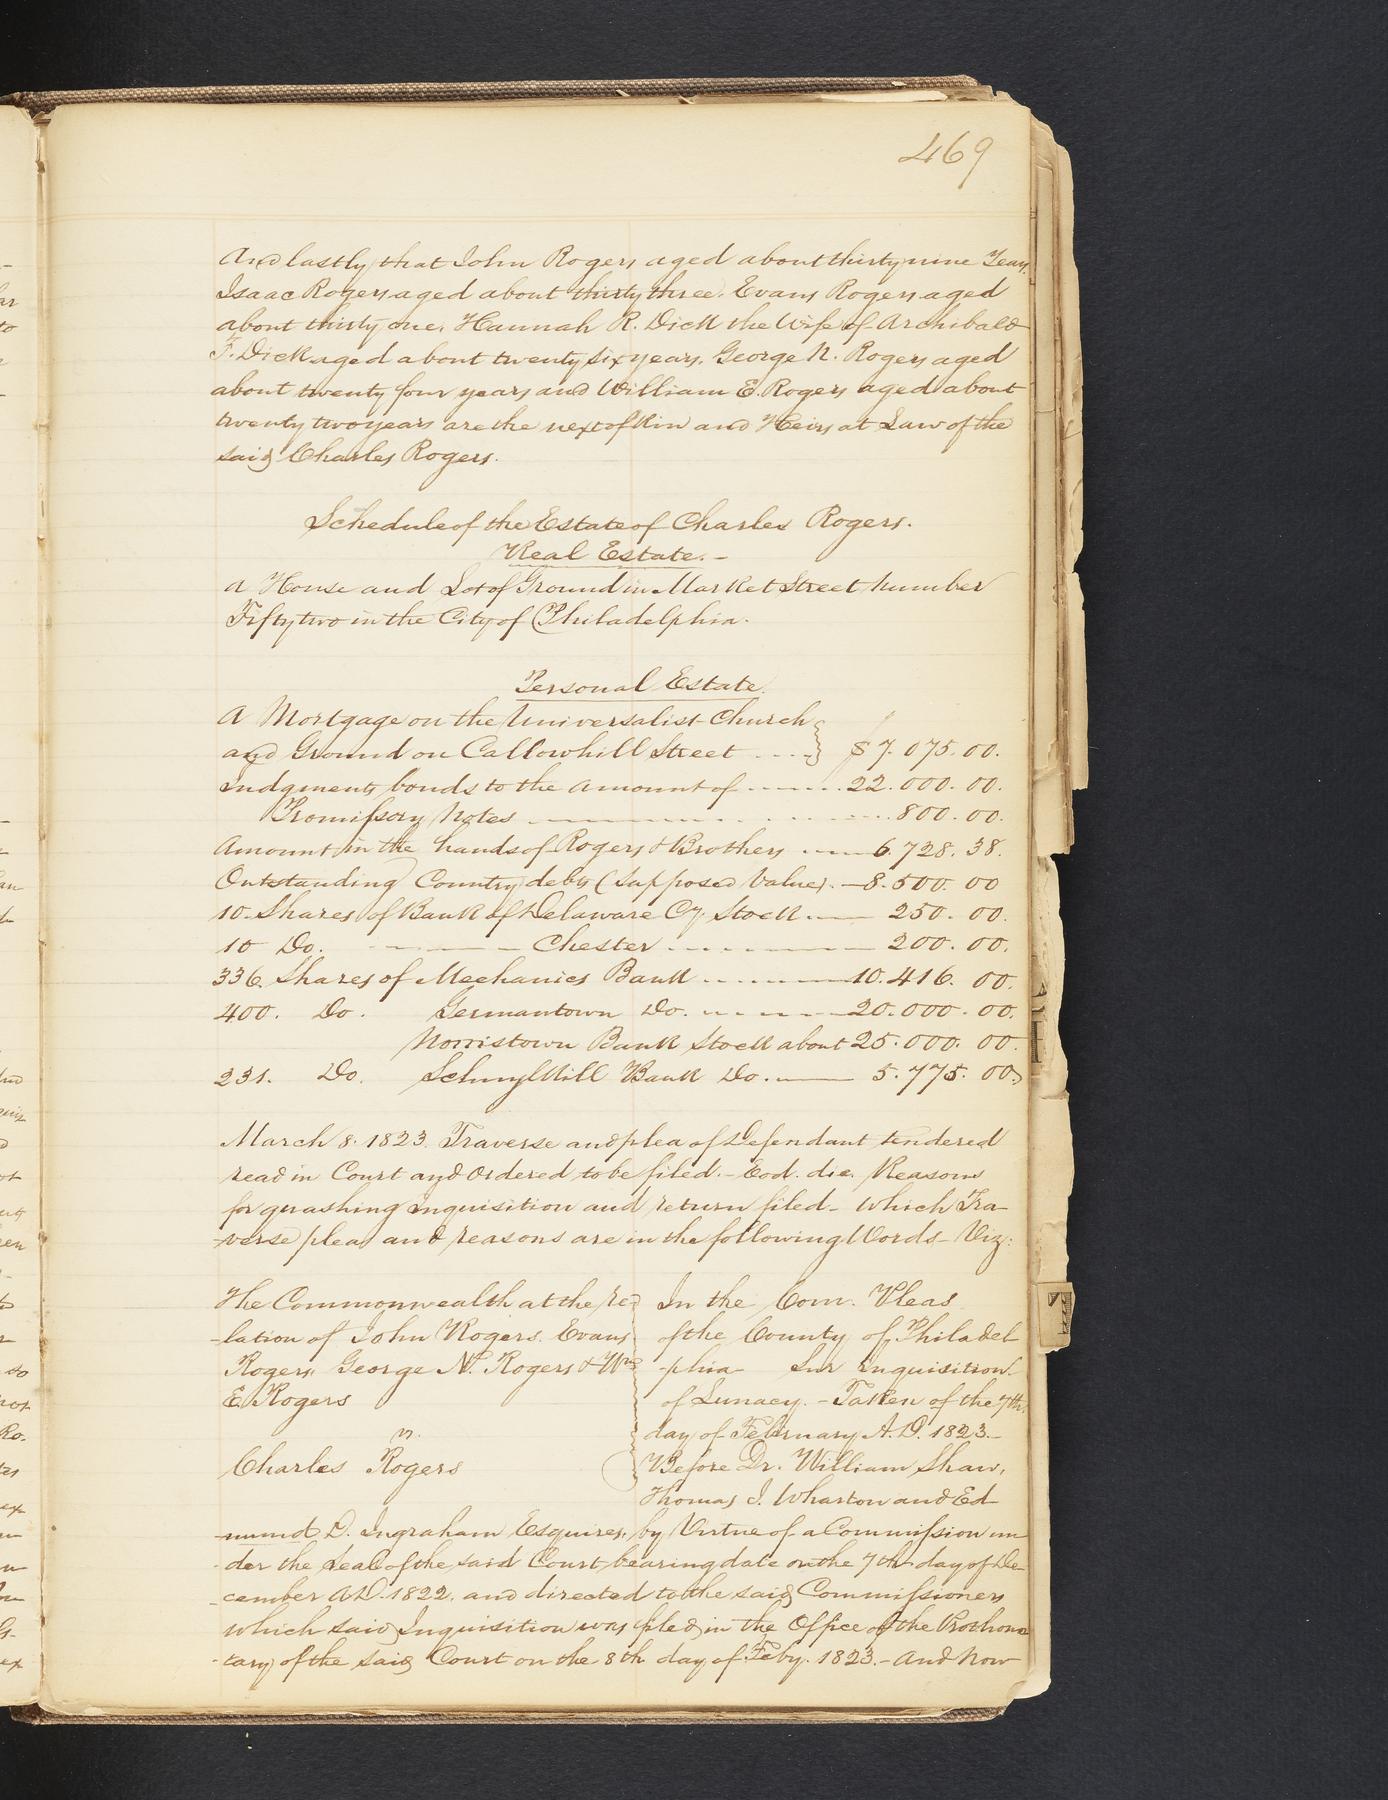 469
And lastly that John Rogers aged about thirty nine Years,
Isaac Rogers aged about thirty three. Evans Rogers aged
about thirty one. Hannah R. Dick the Wife of Archibald
T. Dick aged about twenty six years. George N. Rogers aged
about twenty four years and William E. Rogers aged about
twenty two years are the next of Kin and Heirs at Law of the
said Charles Rogers.
Schedule of the Estate of Charles Rogers.
Real Estate.-
A House and Lot of Ground in Market Street Number
Fifty two in the City of Philadelphia.
Personal Estate.
A Mortgage on the Universalist Church
and Ground on Callowhill Street .... $7.075.00.
Judgments bonds to the amount of ...... 22.000.00.
Promissory Notes ...... 800.00.
Amount in the hands of Rogers & Brothers ...... 6.728.38.
Outstanding Country debts (Supposed Value). - 8.500.00
10. Shares of Bank of Delaware Cy. Stock. ... 250.00.
10 Do. ...... Chester ...... 200.00.
336. Shares of Mechanics Bank ...... 10.416.00.
400. Do. Germantown Do. ...... 20.000.00.
Norristown Bank Stock about 25.000.00.
231. Do. Schuylkill Bank Do. ... 5.775.00
March 8. 1823. Traverse and plea of Defendant tendered
read in Court and ordered to be filed. - Eod. die. Reasons
for quashing inquisition and return filed - which Tra-
-verse plea and reasons are in the following Words - Viz:
The Commonwealth at the re-
-lation of John Rogers. Evans
Rogers, George N. Rogers & Wm
E. Rogers
v.
Charles Rogers
In the Com. Pleas
of the County of Philadel
-phia Sur inquisition
of Lunacy. - Taken of the 7th
day of February A.D. 1823.-
Before Dr. William Shaw,
Thomas I. Wharton and Ed-
-mund D. Ingraham Esquires, by Virtue of a Commission un
-der the Seal of the said Court bearing date on the 7th day of De-
-cember A.D. 1822. and directed to the said Commissioners
which said Inquisition was filed in the Office of the Prothono
-tary of the said Court on the 8th day of Feby. 1823. - And Now